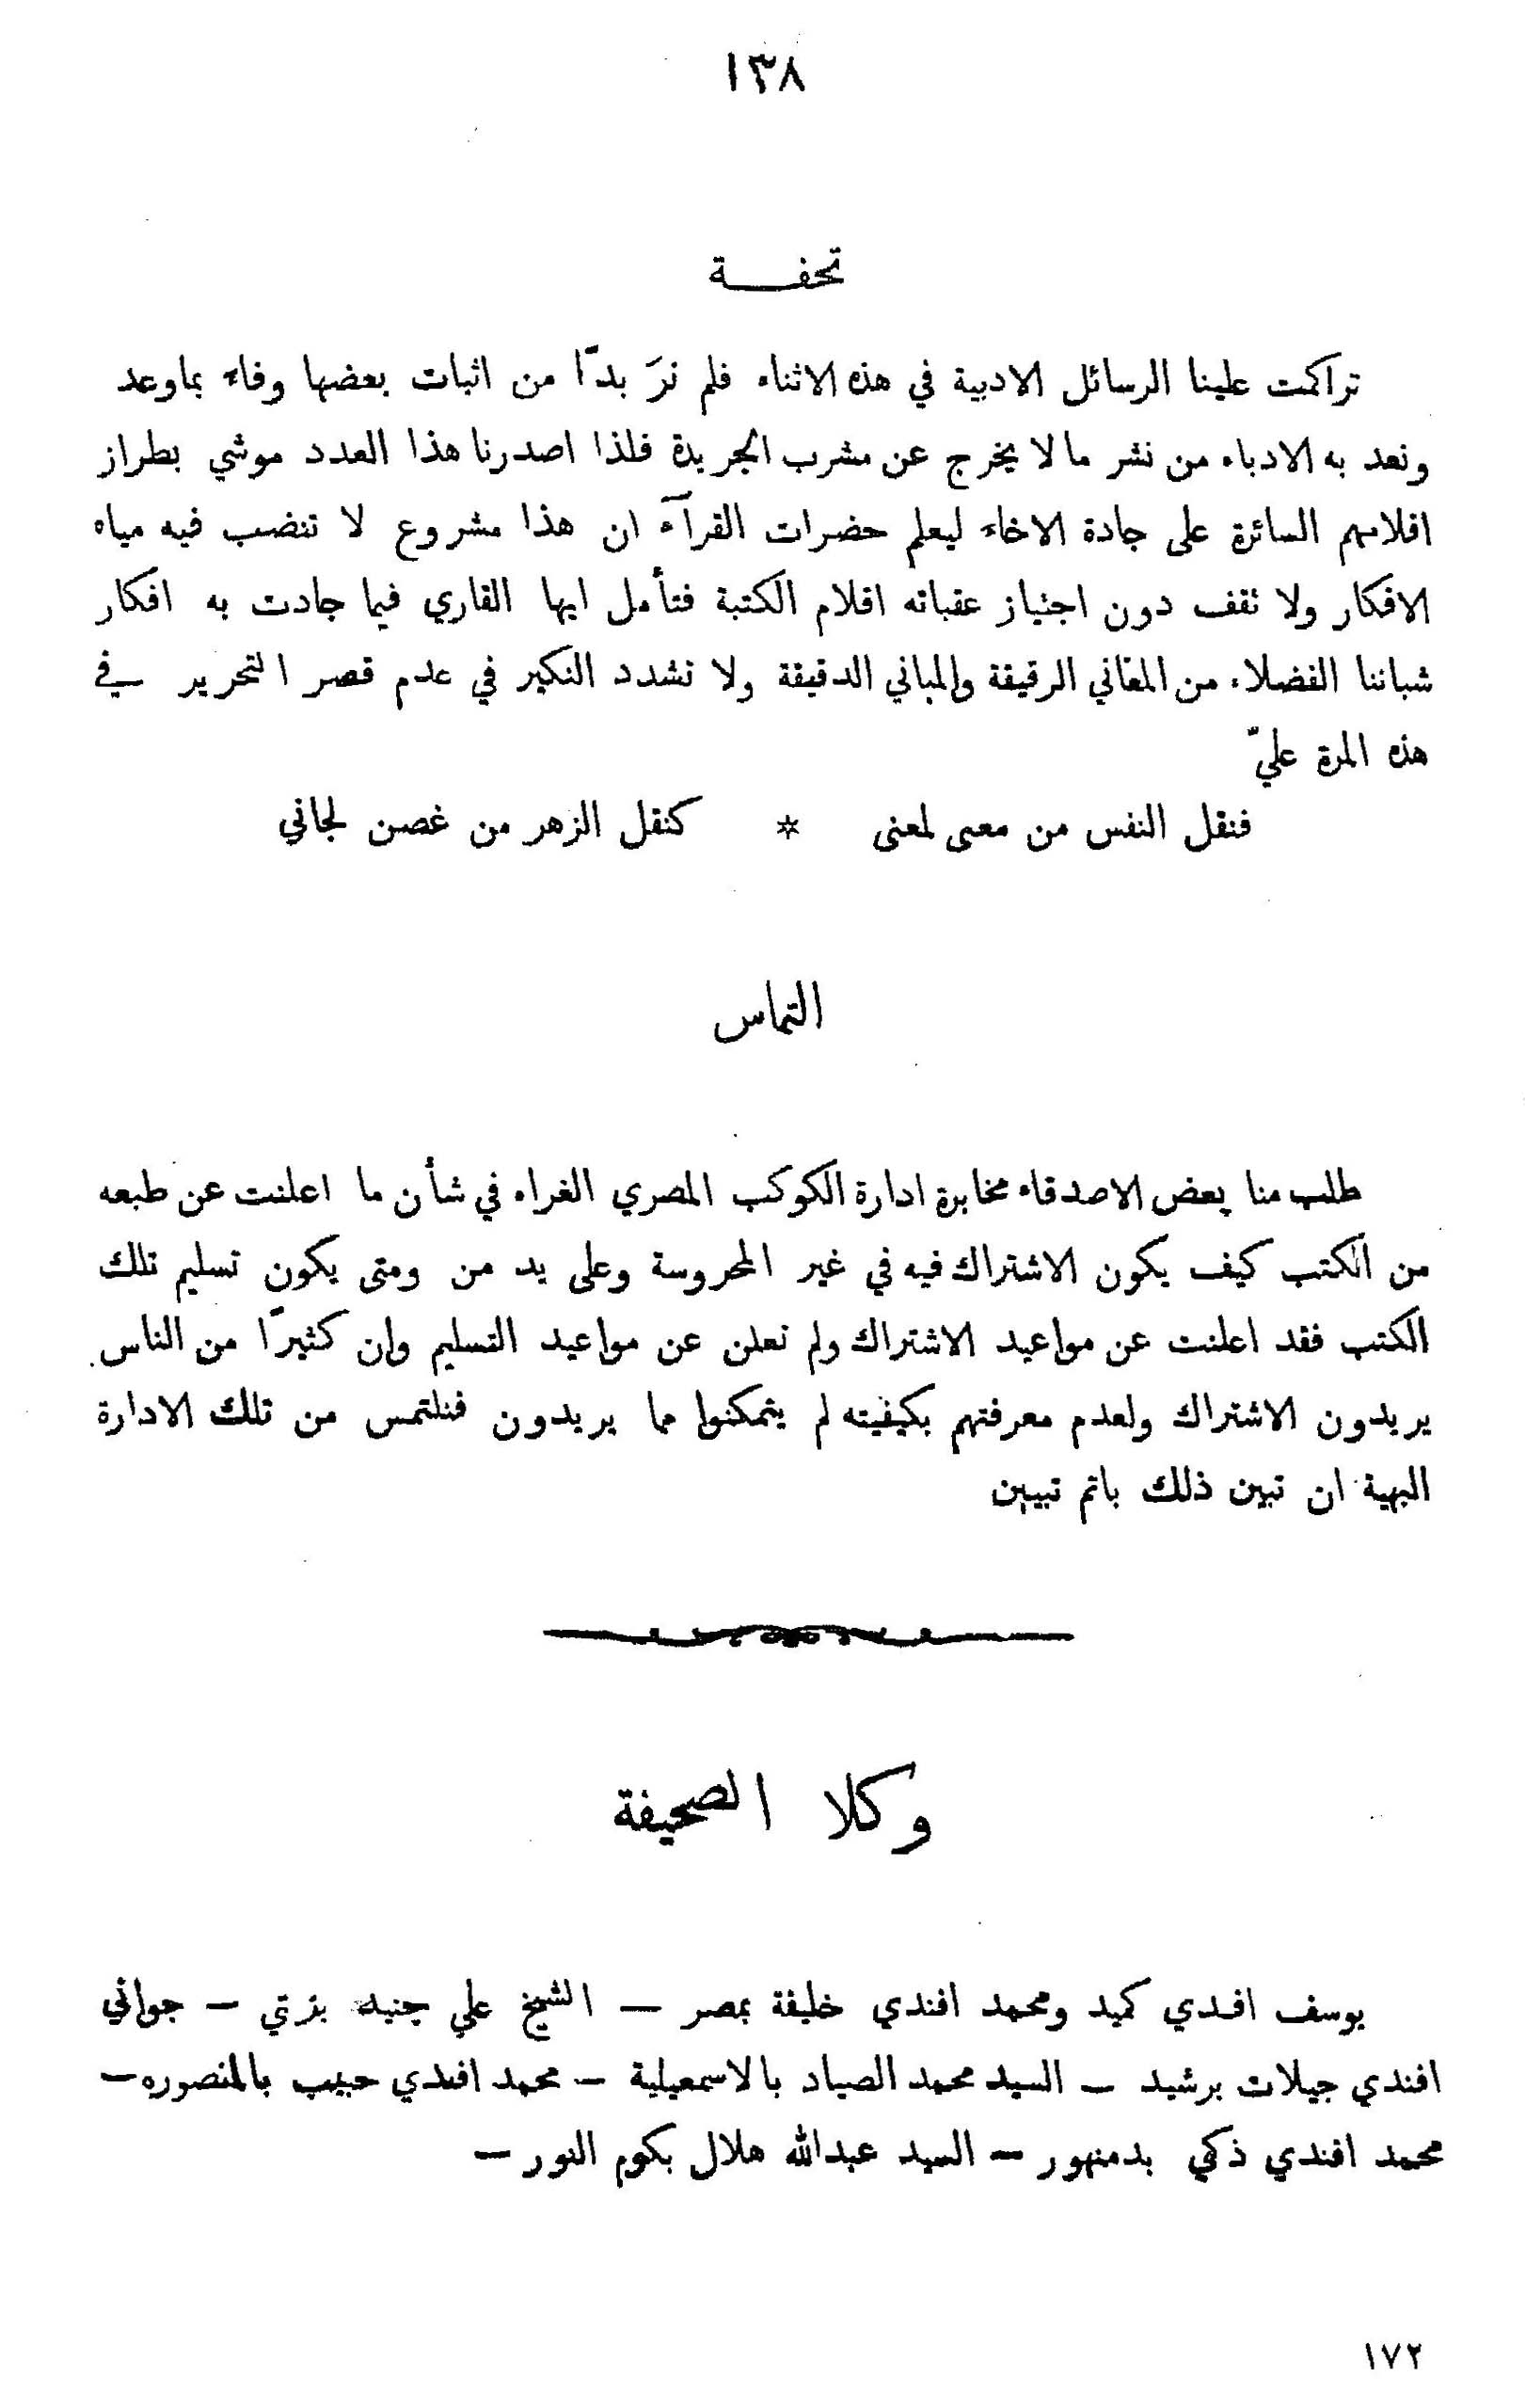 ١٣٨
تحفـــة
تراكمت علينا الرسائل الادبية في هذه الاثناء فلم نرَ بدًّا من اثبات بعضها وفاء بماوعد
ونعد به الادباء من نشر ما لا يخرج عن مشرب الجريدة فلذا اصدرنا هذا العدد موشي بطراز
اقلامهم السائرة على جادة الاخاء ليعلم حضرات القرآء ان هذا مشروع لا تنضب فيه مياه
الافكار ولا تقف دون اجتياز عقباته اقلام الكتبة فتأمل ايها القاري فيما جادت به افكار
شباننا الفضلاء من المغاني الرقيقة والمباني الدقيقة ولا تشدد النكير في عدم قصر التحرير في
هذه المرة عليّ
فنقل النفس من معنى لمعنى * كنقل الزهر من غصن لجاني
التماس
طلب منا بعض الاصدقاء مخابرة ادارة الكوكب المصري الغراء في شأن ما اعلنت عن طبعه
من الكتب كيف يكون الاشتراك فيه في غير المحروسة وعلى يد من ومتى يكون تسليم تلك
الكتب فقد اعلنت عن مواعيد الاشتراك ولم تعلن عن مواعيد التسليم وان كثيرًا من الناس
يريدون الاشتراك ولعدم معرفتهم بكيفيته لم يتمكنوا مما يريدون فنلتمس من تلك الادارة
البهية ان تبين ذلك باتم تبيين
وكلا الصحيفة
يوسف افندي كميد ومحمد افندي خليفة بمصر — الشيخ علي جنيه بزتي — جواني
افندي جيلات برشيد — السيد محمد الصياد بالاسمعيلية — محمد افندي حبيب بالمنصوره —
محمد افندي ذكي بدمنهور — السيد عبدالله هلال بكوم النور —
١٧٢